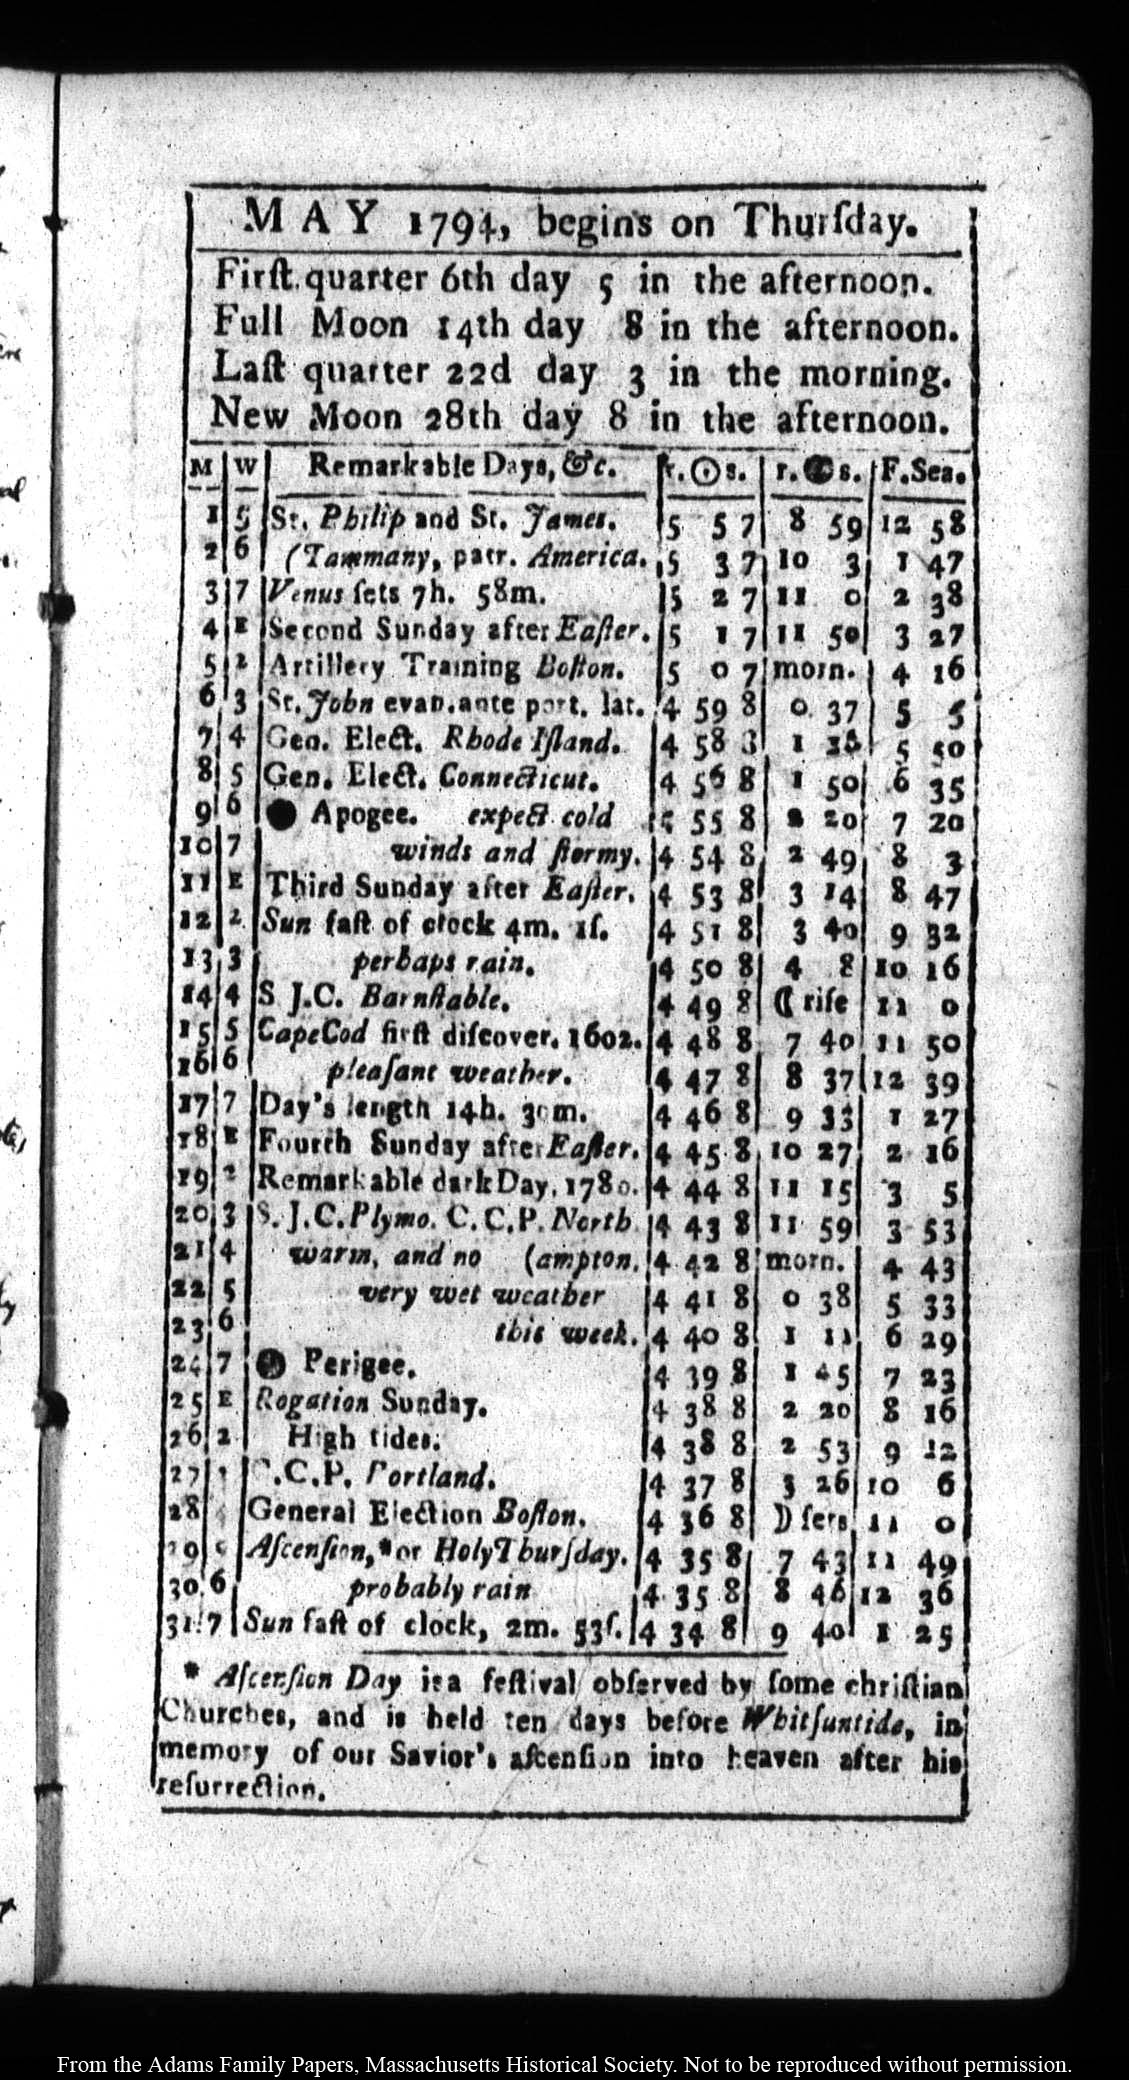 MAY 1794, begins on Thurſday.
Firſt quarter 6th day 5 in the afternoon.
Full Moon 14th day 8 in the afternoon.
Laſt quarter 22d day 3 in the morning.
New Moon 28th day 8 in the afternoon.
M W Remarkable Days, &c. r. ☉ s. r. s. F. Sea.
1 5 St. Philip and St. James. 5 5 7 8 59 12 58
2 6 (Tammany, patr. America. 5 3 7 10 3 1 47
3 7 Venus ſets 7h. 58m. 5 2 7 11 0 2 38
4 E Second Sunday after Eaſter. 5 1 7 11 50 3 27
5 2 Artillery Training Boſton. 5 0 7 morn. 4 16
6 3 St. John evan. ante port. lat. 4 59 8 0 37 5 5
7 4 Gen. Elect. Rhode Iſland. 4 58 8 1 5 50
8 5 Gen. Elect. Connecticut. 4 56 8 1 50 6 35
9 6 ● Apogee. expect cold 55 8 2 20 7 20
10 7 winds and ſtormy. 4 54 8 2 49 8 3
11 E Third Sunday after Eaſter. 4 53 8 3 14 8 47
12 2 Sun faſt of clock 4m. 1ſ. 4 51 8 3 40 9 32
13 3 perhaps rain. 4 50 8 4 8 10 16
14 4 S. J.C. Barnſtable. 4 49 8 ☾ riſe 11 0
15 5 Cape Cod firſt diſcover. 1602. 4 48 8 7 40 11 50
16 6 pleaſant weather. 4 47 8 8 37 12 39
17 7 Day's length 14h. 30m. 4 46 8 9 33 1 27
18 E Fourth Sunday after Eaſter. 4 45 8 10 27 2 16
19 2 Remarkable dark Day, 1780. 4 44 8 11 15 3 5
20 3 S. J.C. Plymo. C.C.P. North 4 43 8 11 59 3 53
21 4 warm, and no (ampton. 4 42 8 morn. 4 43
22 5 very wet weather 4 41 8 0 38 5 33
23 6 this week. 4 40 8 1 11 6 29
24 7 Perigee. 4 39 8 1 45 7 23
25 E Rogation Sunday. 4 38 8 2 20 8 16
26 2 High tides. 4 38 8 2 53 9 12
27 C.C.P. Portland. 4 37 8 3 26 10 6
28 General Election Boſton. 4 36 8 ☽ ſets 11 0
29 5 Aſcenſion,* or Holy Thurſday. 4 35 8 7 43 11 49
30 6 probably rain 4 35 8 8 46 12 36
31 7 Sun faſt of clock, 2m. 53ſ. 4 34 8 9 40 1 25
* Aſcenſion Day is a feſtival obſerved by ſome chriſtian
Churches, and is held ten days before Whitſuntide, in
memory of our Savior's aſcenſion into heaven after his
reſurrection.
From the Adams Family Papers, Massachusetts Historical Society. Not to be reproduced without permission.